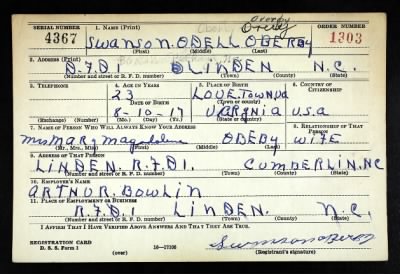 SERIAL NUMBER 1. NAME (Print) ORDER NUMBER
4367 SWANSON. ODELL OBERBY 1303
(First) (Middle) (Last)
2. ADDRESS (Print)
R.F.D.1 LINDEN N.C.
(Number and street or R. F. D. number) (Town) (County) (State)
3. TELEPHONE 4. AGE IN YEARS 5. PLACE OF BIRTH 6. COUNTRY OF CITIZENSHIP
23 LOVETOWN.VA
DATE OF BIRTH (Town or county)
8-10-17 VARGNIA U.S.A
(Exchange) (Number) (Mo.) (Day) (Yr.) (State or country)
7. NAME OF PERSON WHO WILL ALWAYS KNOW YOUR ADDRESS 8. RELATIONSHIP OF THAT PERSON
Mrs MARY OBEBY WIFE
(Mr., Mrs., Miss) (First) (Middle) (Last)
9. ADDRESS OF THAT PERSON
LINDEN. R.F.D1. CUMBERLIN.NC
(Number and street or R. F. D. number) (Town) (County) (State)
10. EMPLOYER'S NAME
ARTHUR. BOWLIN
11. PLACE OF EMPLOYMENT OR BUSINESS
R.F.D.1 LINDEN. N.C.
(Number and street or R. F. D. number) (Town) (County) (State)
I AFFIRM THAT I HAVE VERIFIED ABOVE ANSWERS AND THAT THEY ARE TRUE.
REGISTRATION CARD
D. S. S. Form 1 16—17105
(over) (Registrant's signature)